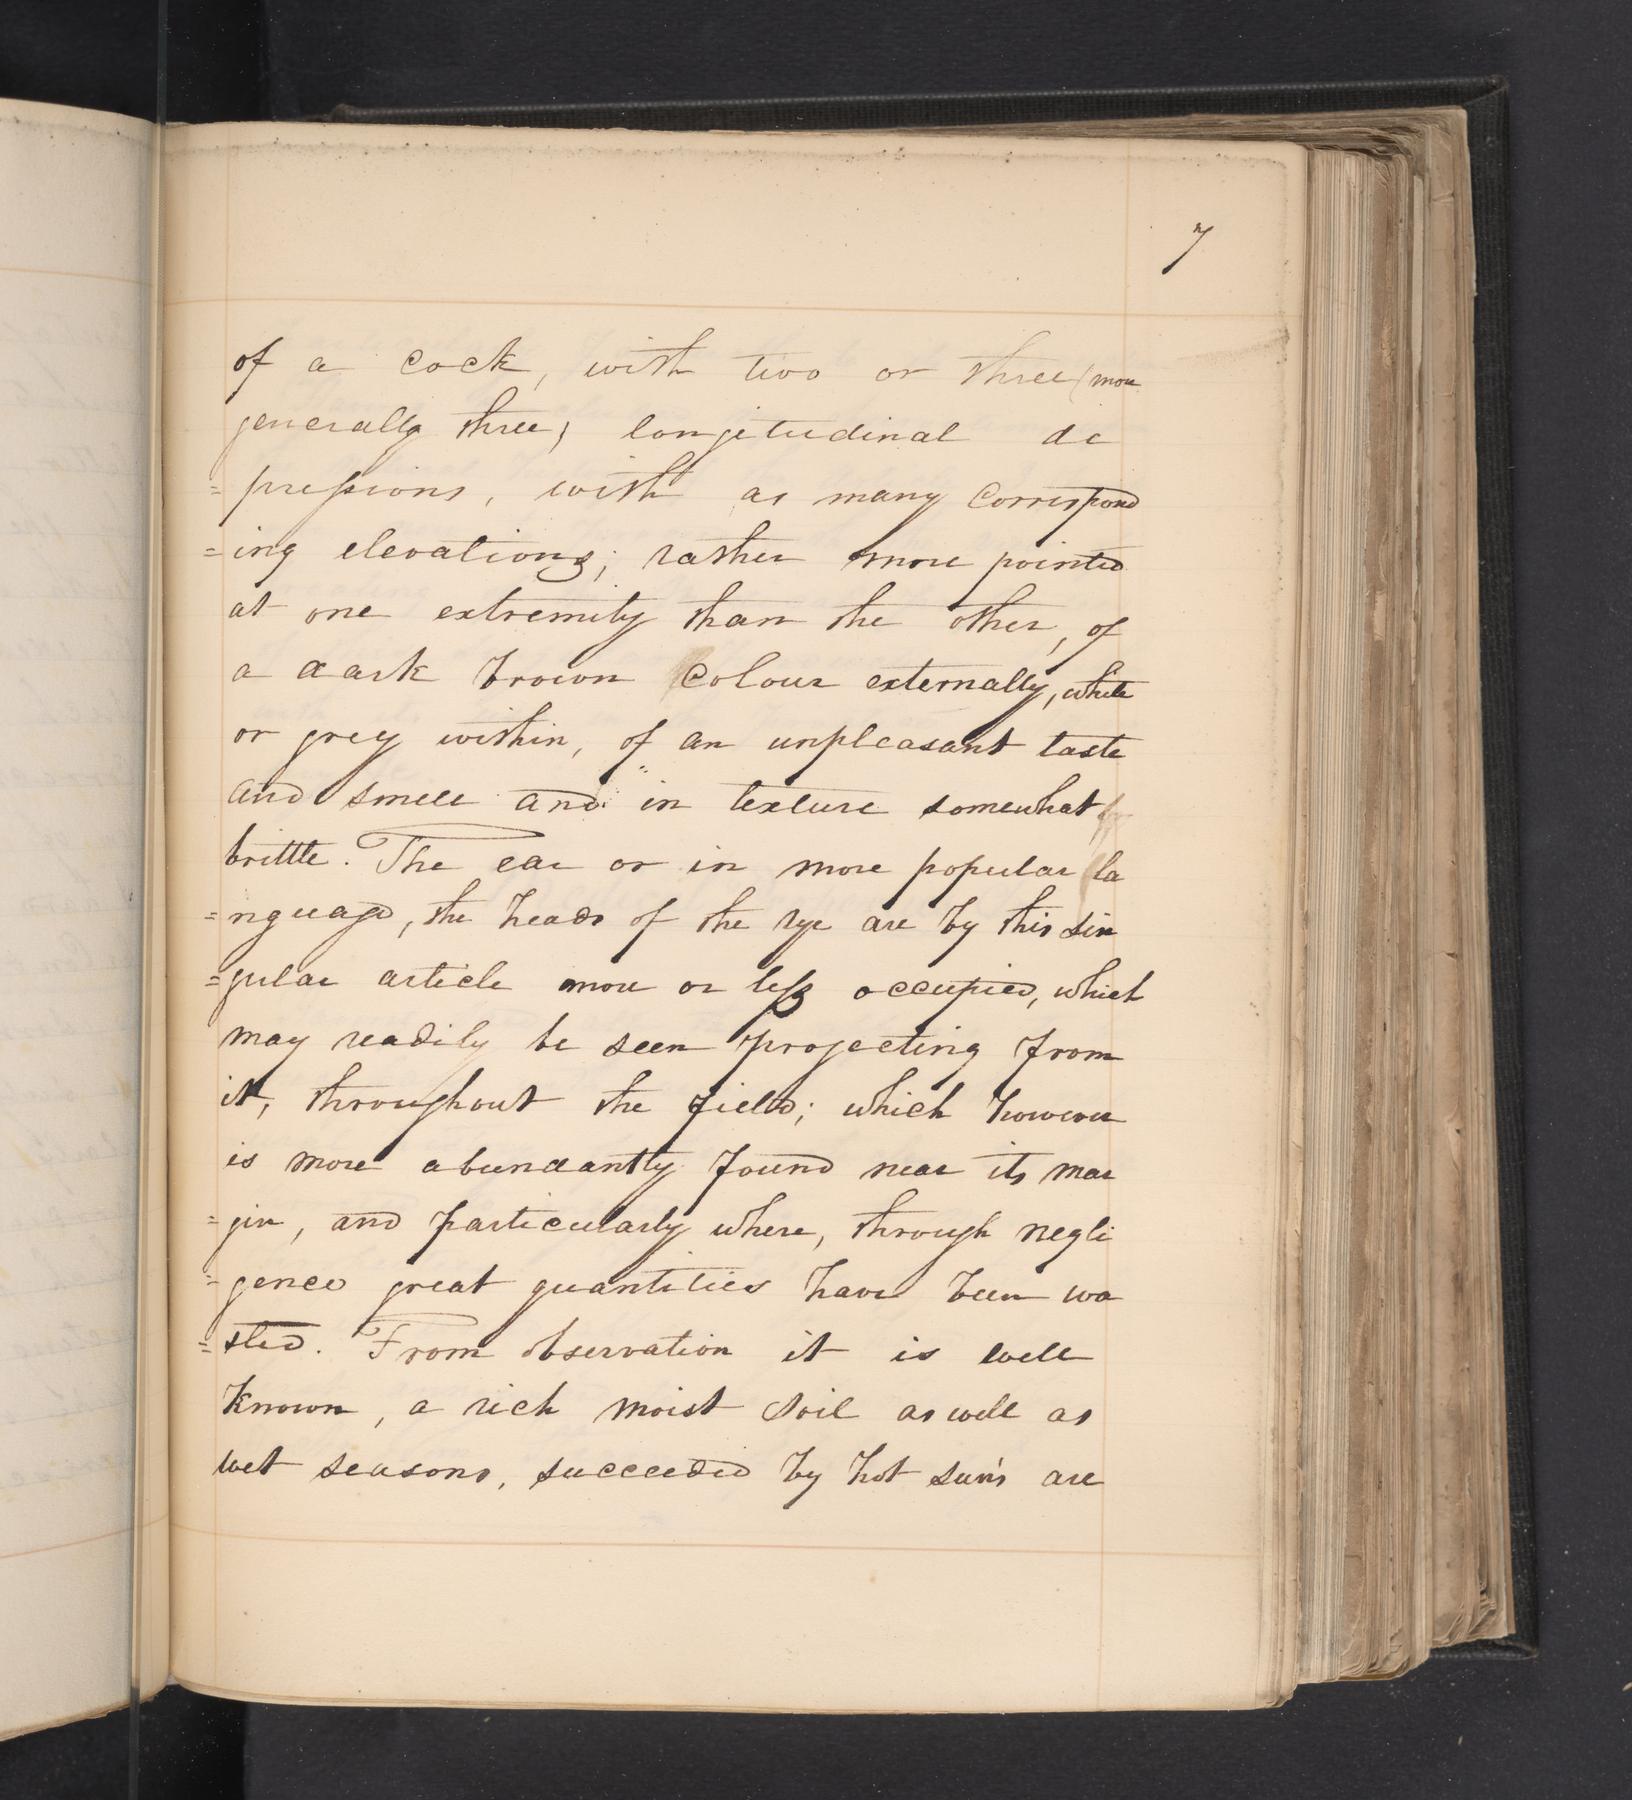 7
of a cock, with two or three (more
generally three) longitudinal de
=pressions, with as many correspond
=ing elevations; rather more pointed
at one extremity than the other, of
a dark brown colour externally, white
or grey within, of an unpleasant taste
and smell and in texture somewhat
brittle. The ear or in more popular la
=nguage, the heads of the rye are by this sin
=gular article more or less occupied, which
may readily be seen projecting from
it, throughout the field; which however
is more abundantly found near its mar
=gin, and particularly where, through negli
=gence great quantities have been wa
=sted. From observation it is well
known, a rich moist soil as well as
wet seasons, succeeded by hot sun's are